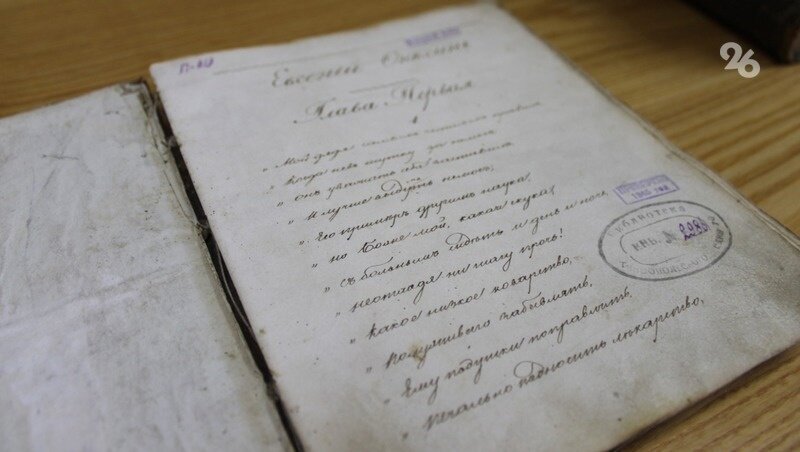 26
Евгений Онегин
Глава Первая
1
„ Мой дядя самыхъ честныхъ правилъ
„ Когда не въ шутку
„ онъ уважать себя заставилъ
„ И лучше выдумать не могъ,
„ Его примеръ другимъ наука
„ но Боже мой, какая скука,
„ съ больнымъ сидѣть и день и ночь
„ неотходя ни шагу прочь!
„ какое низкое коварство,
„ забавлять,
„ Ему подушки поправлять,
„ печально подносить лѣкарство,
ПРОВЕРЕНО
1965 год
БИБЛИОТЕКА
ИНВ. №